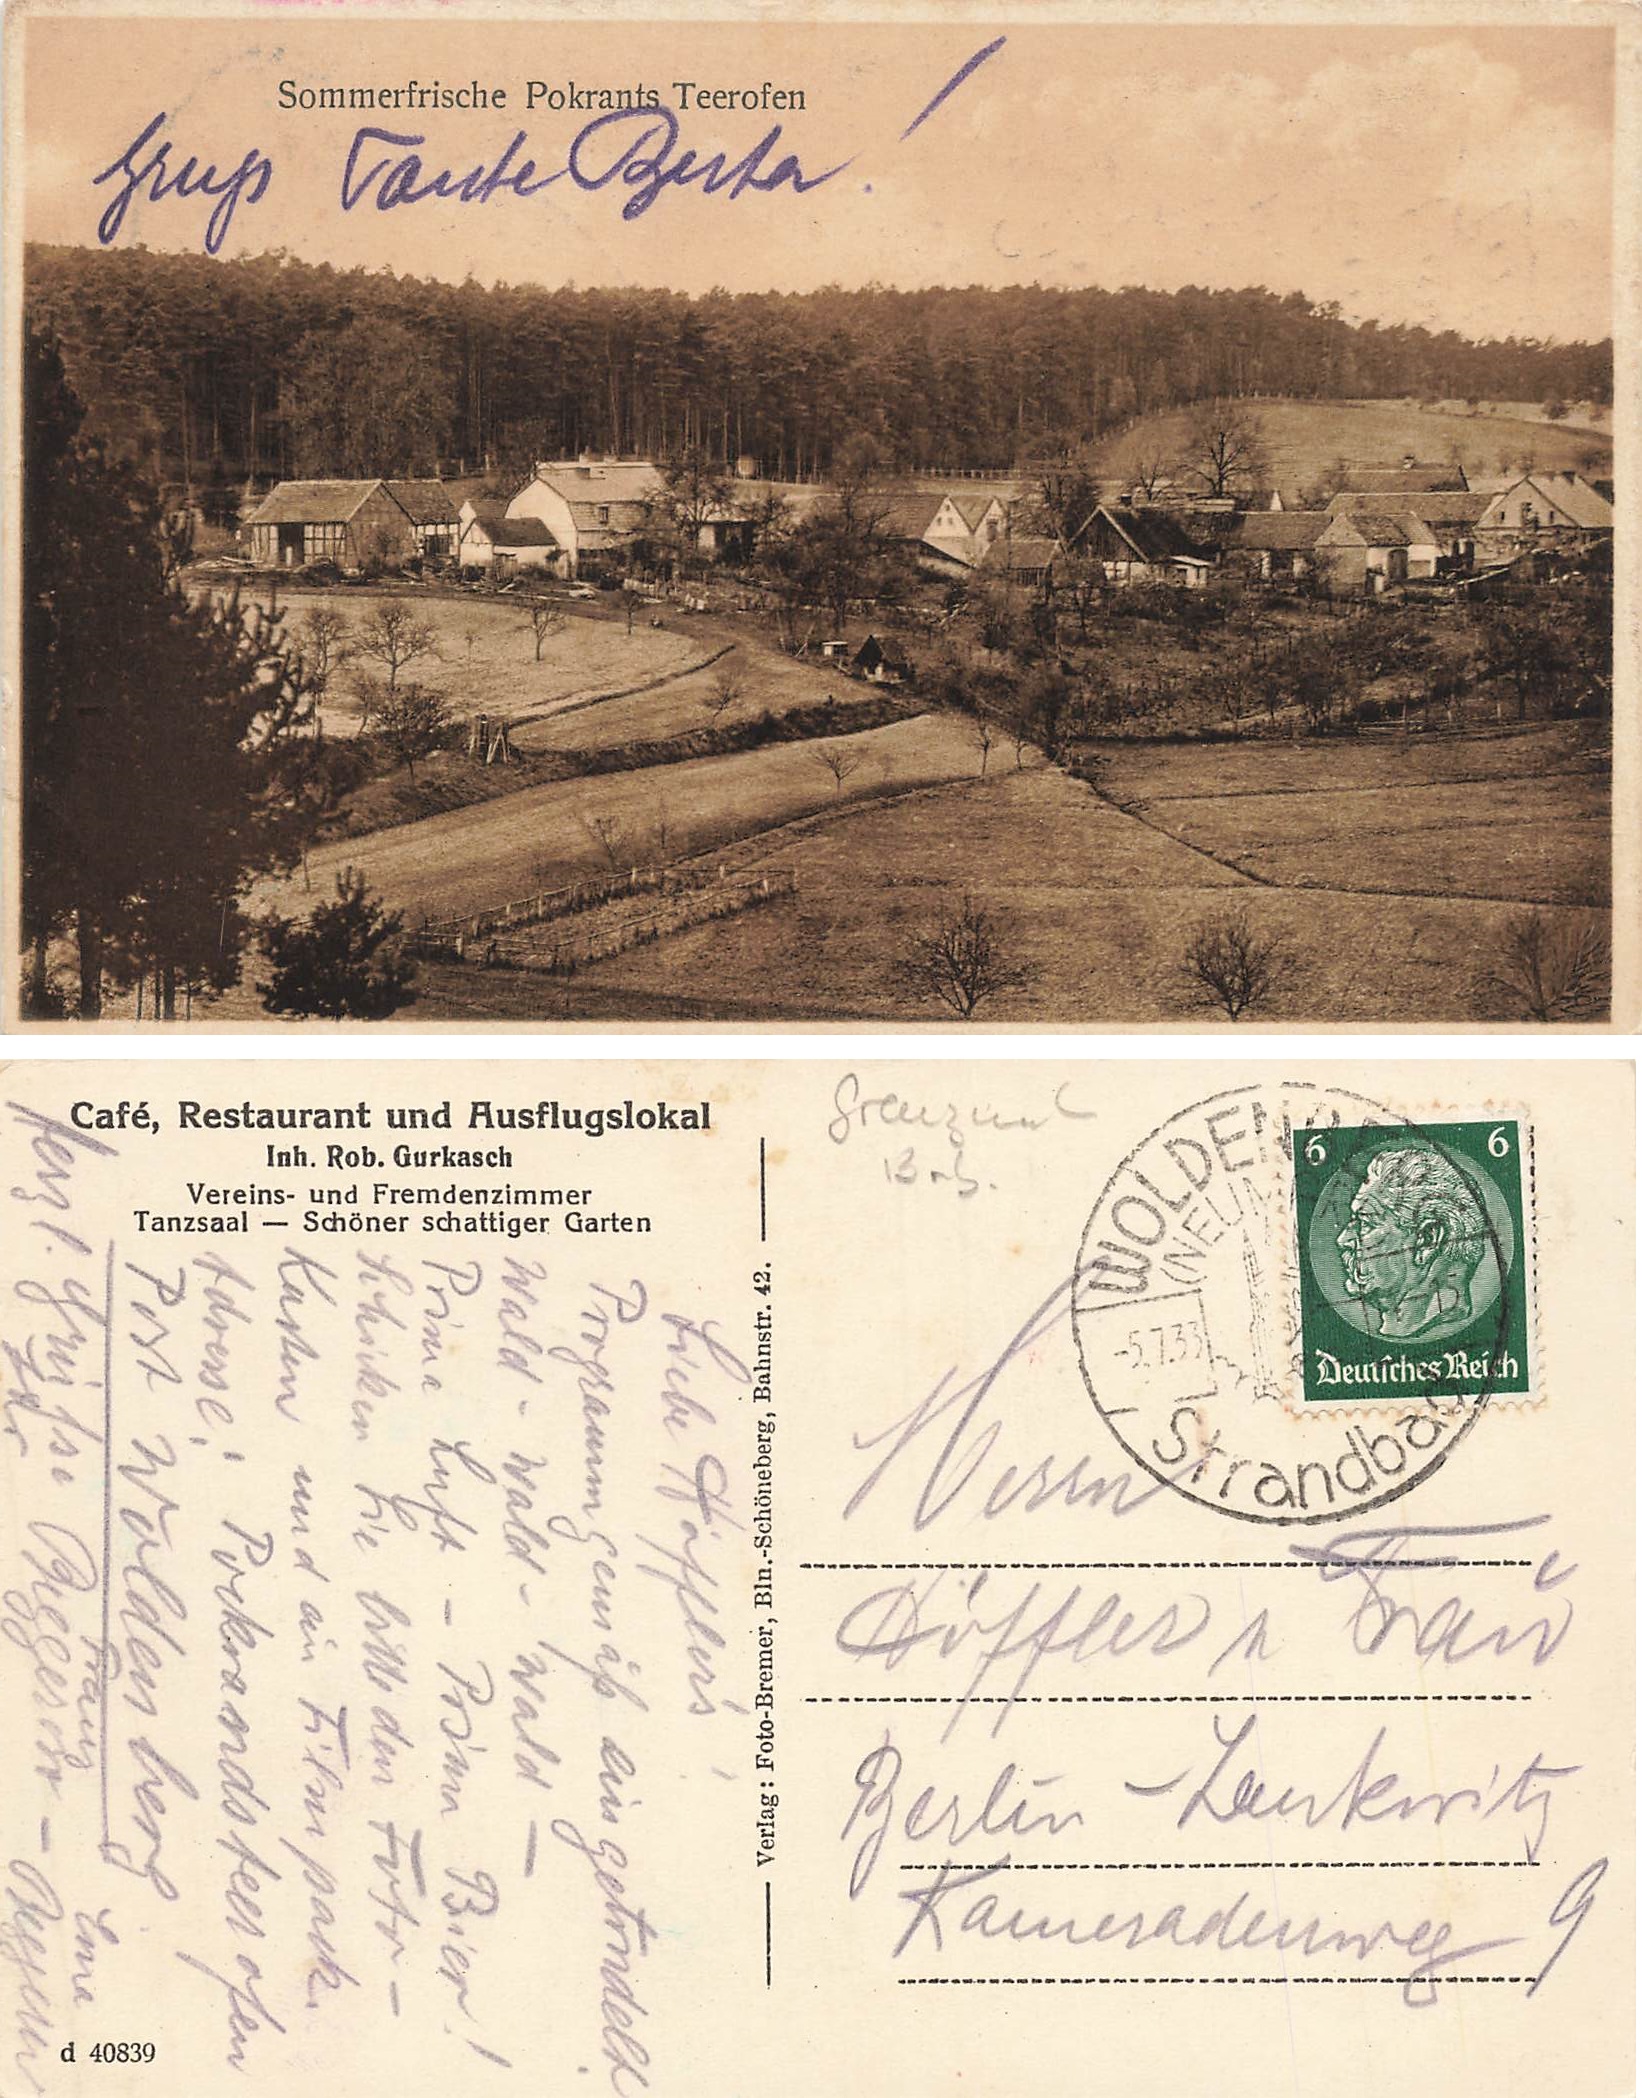 Sommerfrische Pokrants Teerofen
Gruß Tante Berta!
Café, Restaurant und Ausflugslokal
Inh. Rob. Gurkasch
Vereins- und Fremdenzimmer
Tanzsaal — Schöner schattiger Garten
Liebe Höfflers,
Programmgemäß eingetrudelt.
Wald - Wald - Wald -
Prima Luft - Prima Bier!
Schicken Sie bitte den Foto-
Kasten und ein Filmpack.
Adresse: Pockrandsteerofen
Post Woldenberg
Herzl. Grüße
Verlag: Foto-Bremer, Bln.-Schöneberg, Bahnstr. 42.
d 40839
WOLDENB
(NEUM
-5.7.33
Strandbad
6 6
Deutsches Reich
Herrn
Höffler u Frau
Berlin-Lankwitz
Kameradenweg 9